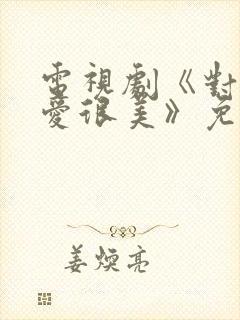 電視劇《對
愛很美》免
姜煥亮